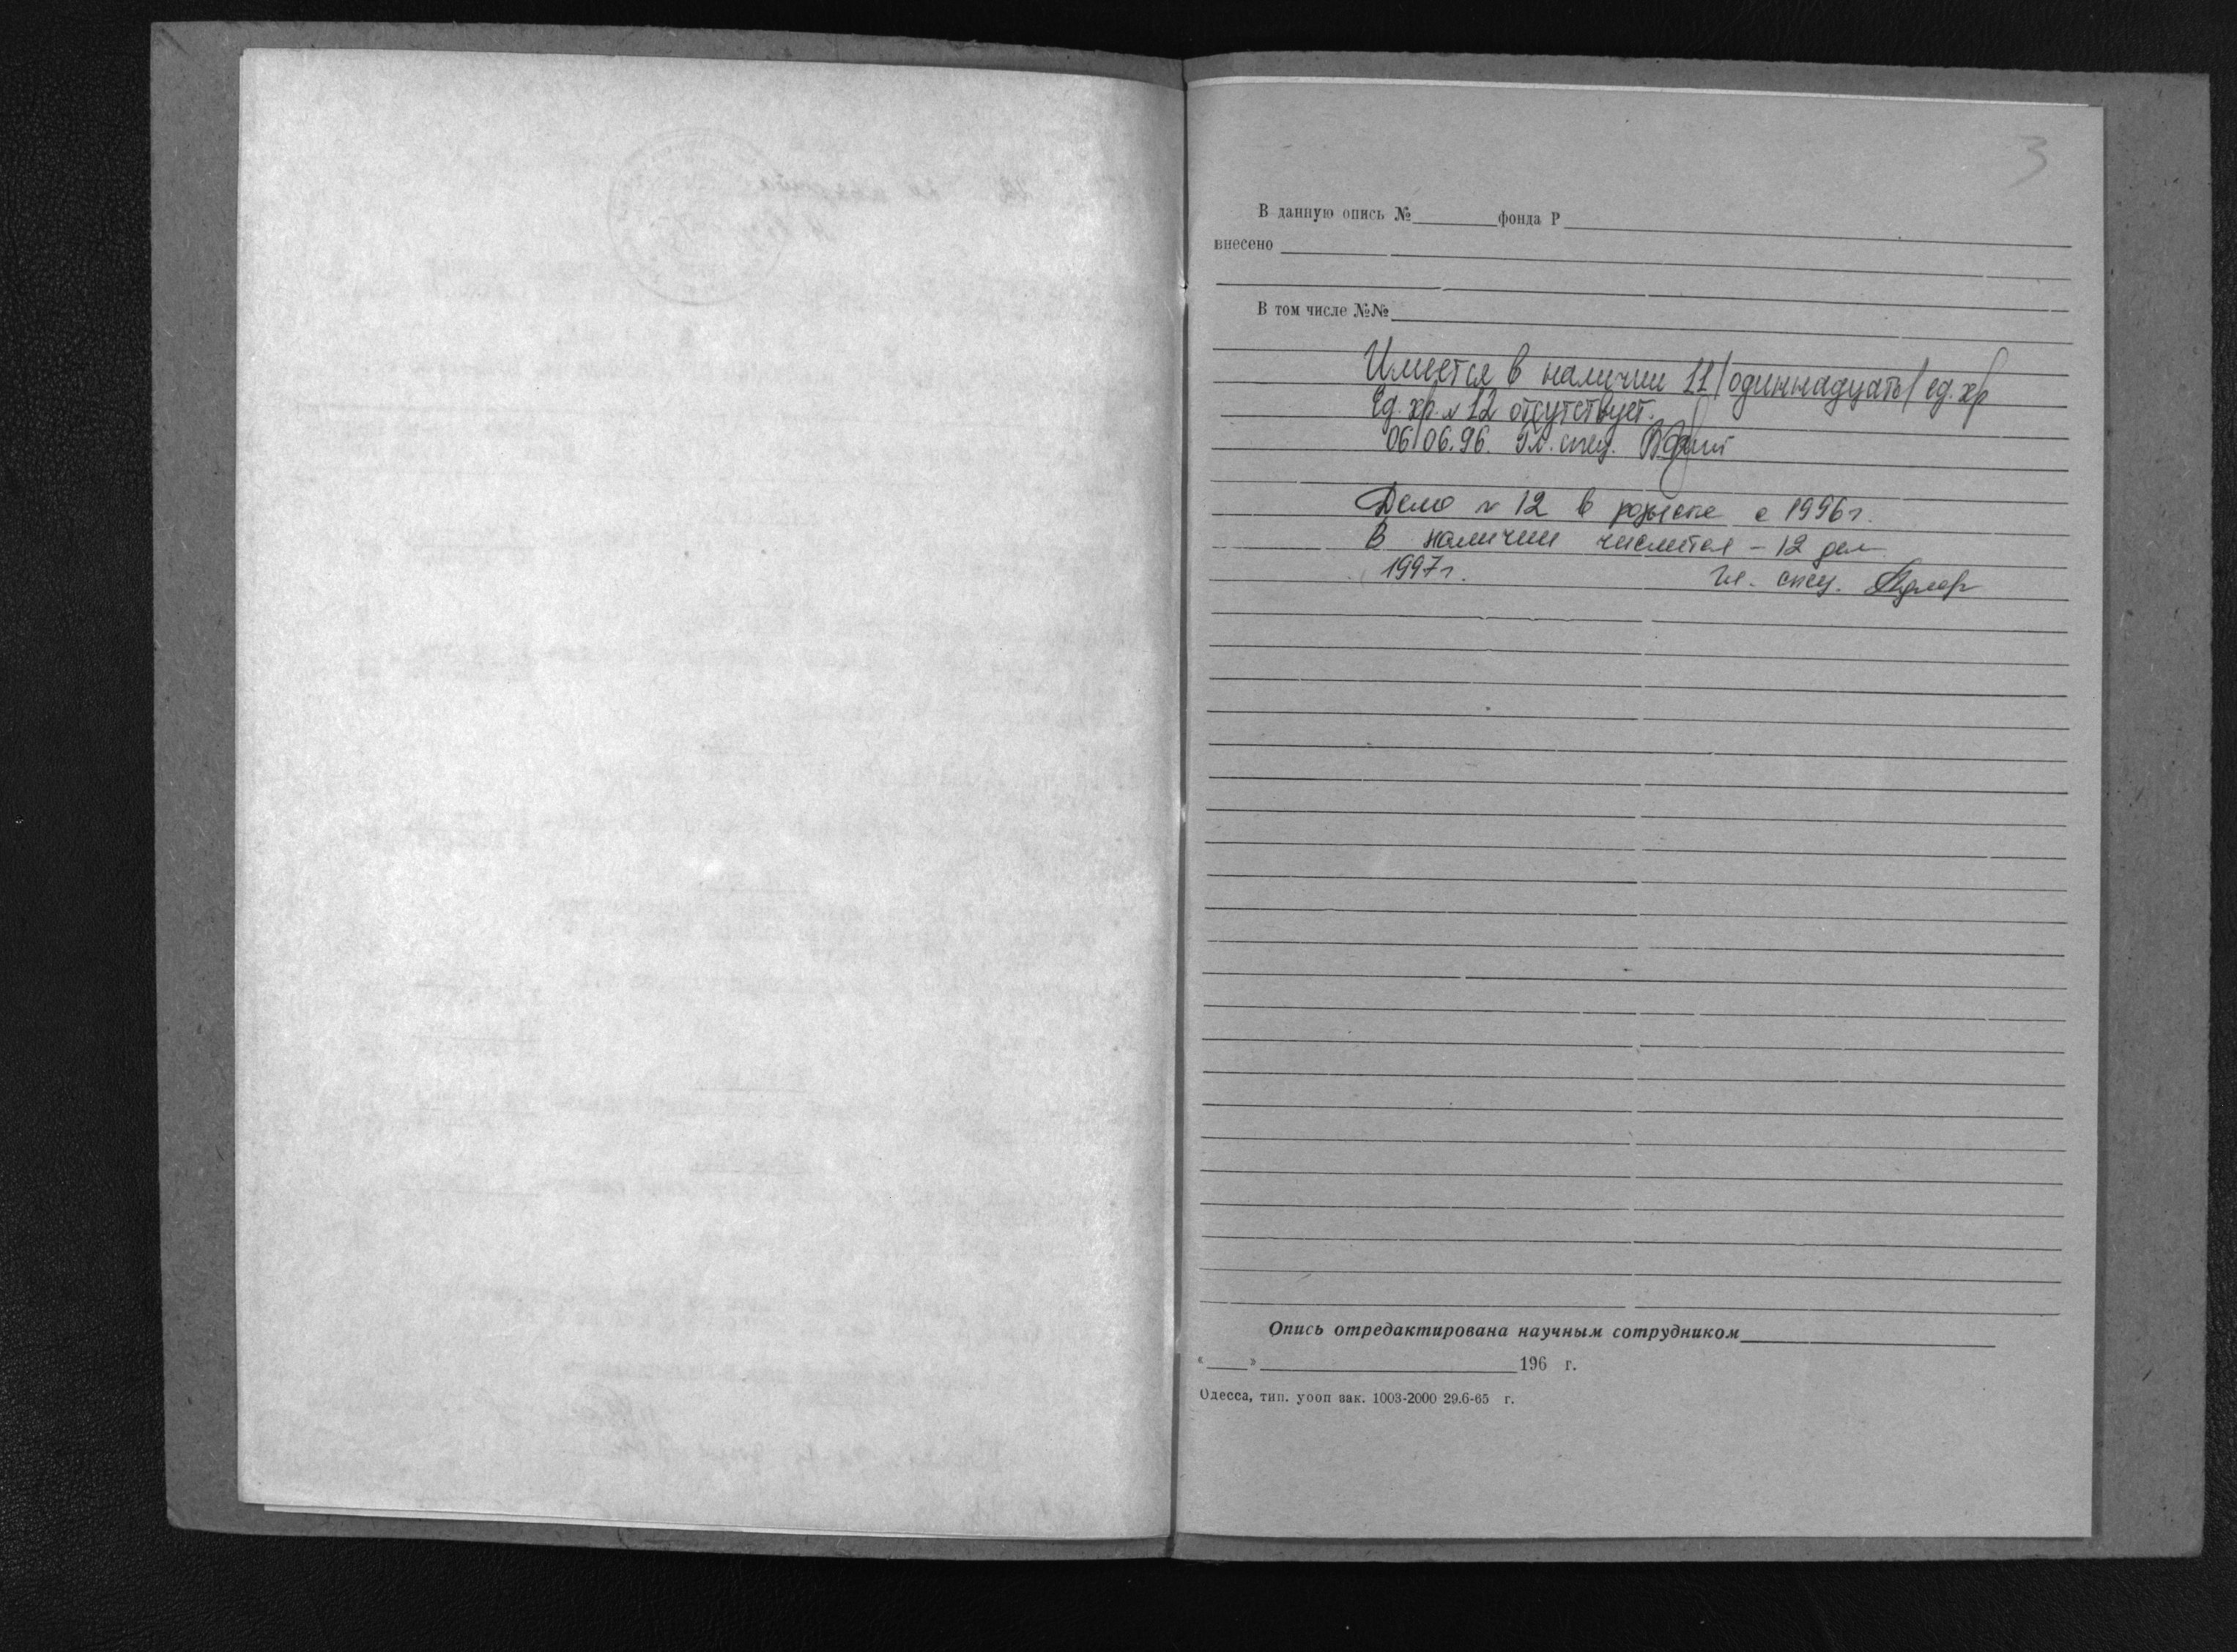 3
В данную опись № фонда Р
внесено
В том числе №№
Имеется в наличии 11/одиннадцать/ ед. хр
Ед. хр. № 12 отсутствует.
06/06.96. Гл. спец.
Дело № 12 в розыске с 1996 г.
В наличии числится – 12 дел
1997 г. Гл. спец.
Опись отредактирована научным сотрудником
« » 196 г.
Одесса, тип. уооп зак. 1003-2000 29.6-65 г.